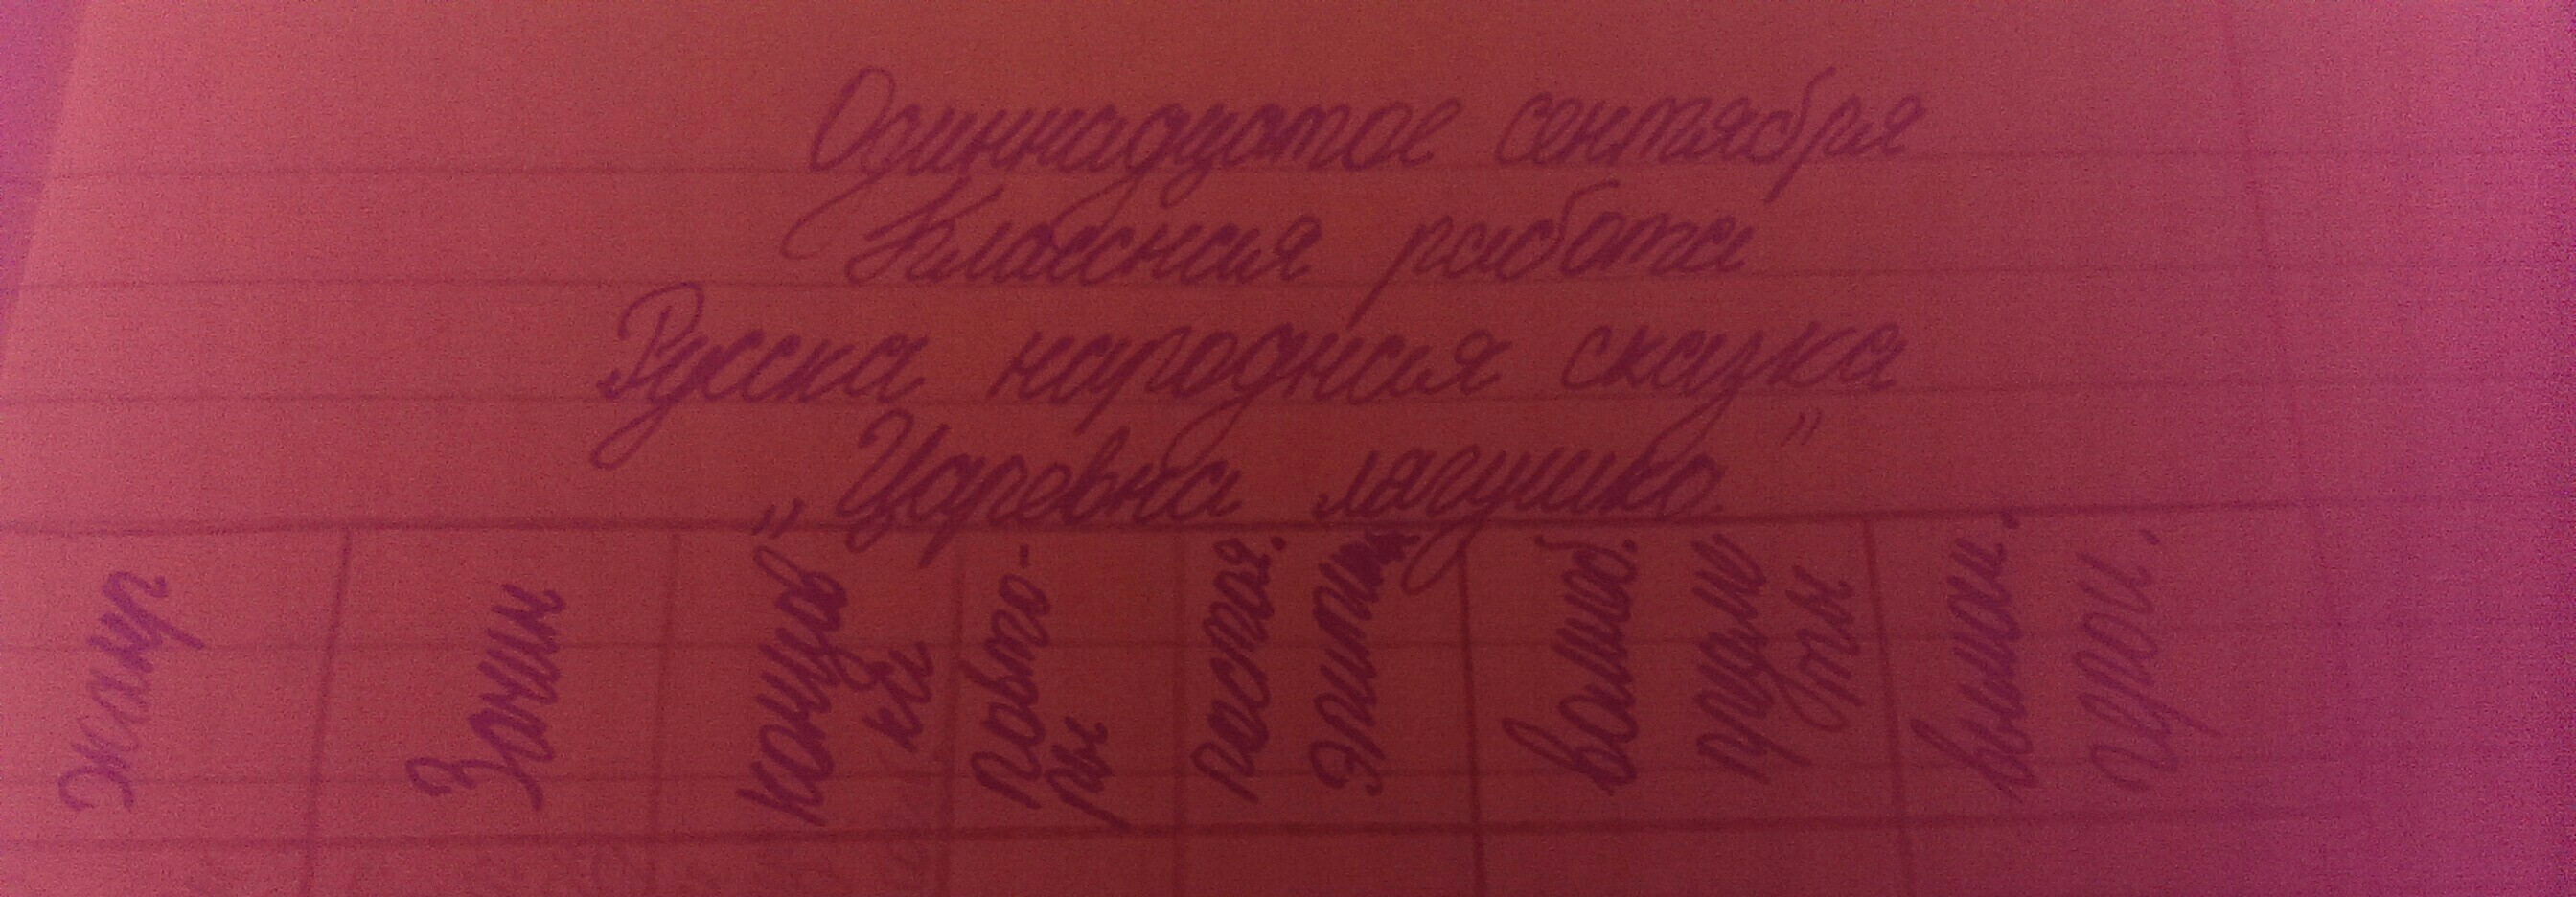 Одиннадцатое сентября
Классная работа
Русска народная сказка
„Царевна лягушка”
жанр
Зачин
концов
ка
повто-
ры
постоя.
эпит
волшеб.
предме
ты
вымыш.
герои.